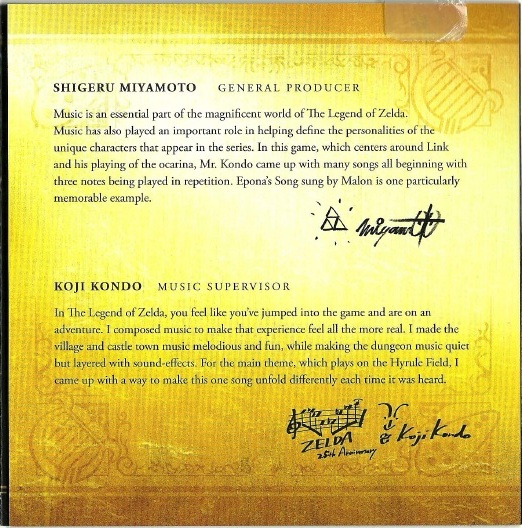 SHIGERU MIYAMOTO GENERAL PRODUCER
Music is an essential part of the magnificent world of The Legend of Zelda.
Music has also played an important role in helping define the personalities of the
unique characters that appear in the series. In this game, which centers around Link
and his playing of the ocarina, Mr. Kondo came up with many songs all beginning with
three notes being played in repetition. Epona's Song sung by Malon is one particularly
memorable example.
KOJI KONDO MUSIC SUPERVISOR
In The Legend of Zelda, you feel like you've jumped into the game and are on an
adventure. I composed music to make that experience feel all the more real. I made the
village and castle town music melodious and fun, while making the dungeon music quiet
but layered with sound-effects. For the main theme, which plays on the Hyrule Field, I
came up with a way to make this one song unfold differently each time it was heard.
ZELDA
25th Anniversary
Koji Kondo